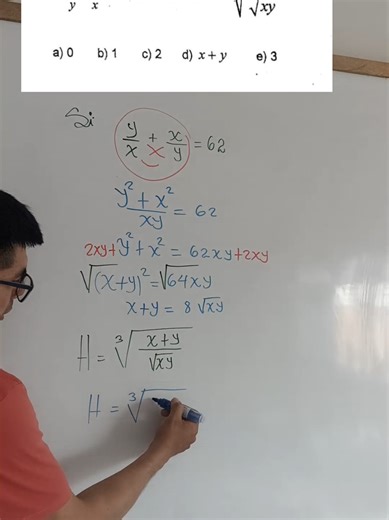 y x √√xy
a) 0 b) 1 c) 2 d) x + y e) 3
Si y/x + x/y = 62
y² + x² / xy = 62
2xy + y² + x² = 62xy + 2xy
√(x+y)² = √64xy
x+y = 8 √xy
H = ³√(x+y / √xy)
H = ³√